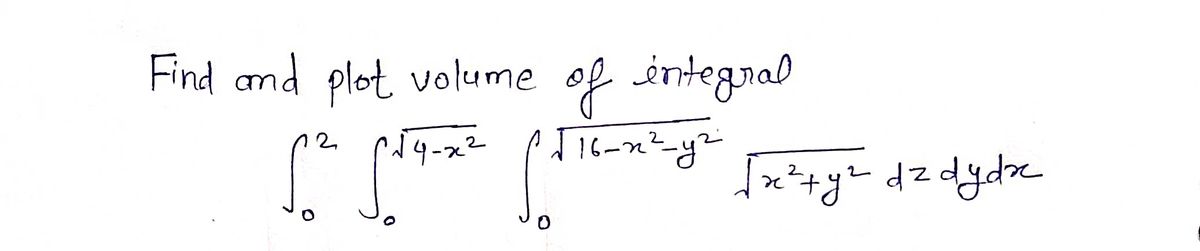 Find and plot volume of integral
∫₀² ∫₀^√(4-x²) ∫₀^√(16-x²-y²) √(x²+y²) dz dy dx